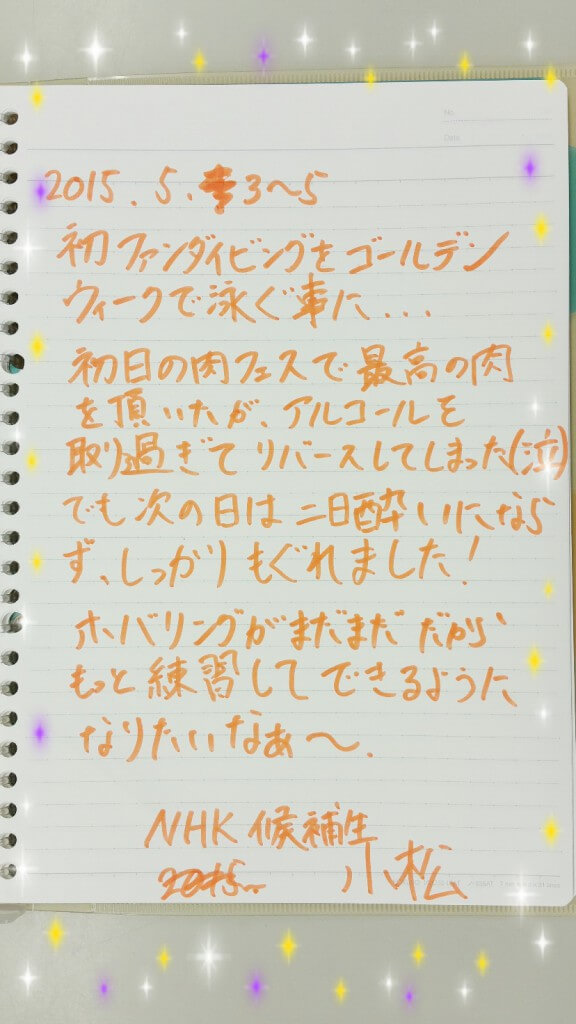 No.
Date
2015.5.3〜5
初ファンダイビングをゴールデン
ウィークで泳ぐ事に...
初日の肉フェスで最高の肉
を頂いたが、アルコールを
取り過ぎてリバースしてしまった(泣)
でも次の日は二日酔いになら
ず、しっかりもぐれました!
ホバリングがまだまだだから
もっと練習してできるように
なりたいなぁ〜.
NHK 候補生
小松